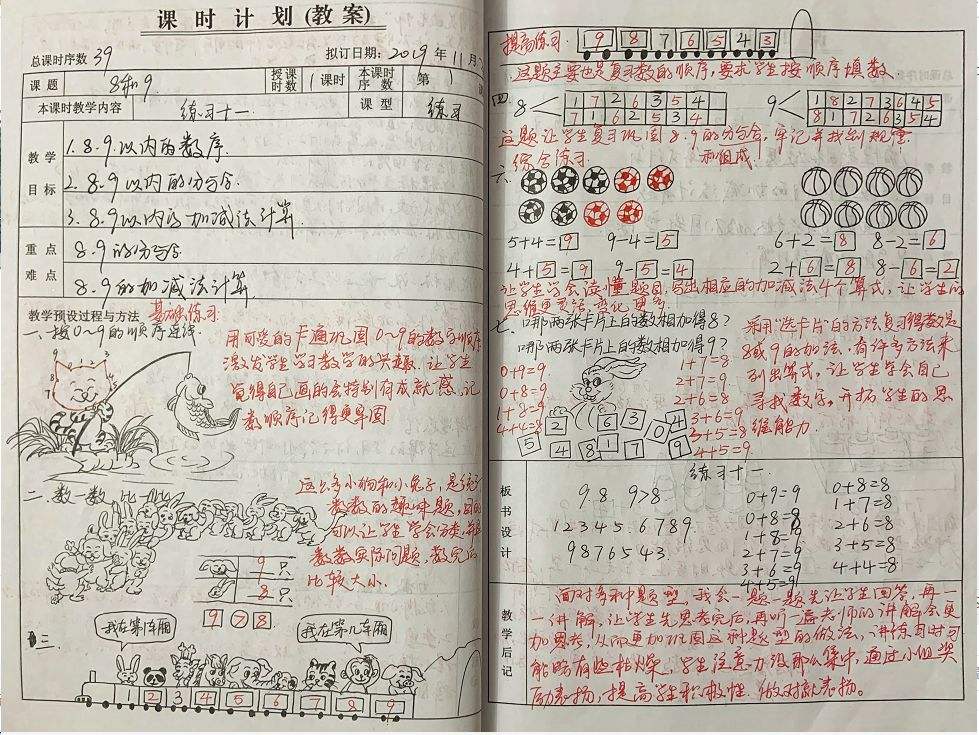 课时计划(教案)
总课时序数 39 拟订日期: 2019年11月
课题 8和9 授课时数 1 课时 本课时序数 第 1
本课时教学内容 练习十一 课型 练习
教学目标
1. 8.9.以内的数序.
2. 8.9以内的分与合.
3. 8.9以内的加减法计算.
重点难点
8.9的分与合
8.9的加减法计算.
教学预设过程与方法 基础练习:
一、按0~9的顺序连线.
用可爱的卡通巩固0~9的数字顺序
激发学生学习数学的兴趣.让学生
觉得自己画的会特别有成就感,记
数顺序记得更牢固.
二、数一数 比一比
这么多小狗和小兔子,是
数数的趣味题,
可以让学生学会分类,
数数实际问题,数完后
比较大小.
9只
8只
9 > 8
三.
我在第1车厢
我在第几车厢
1 2 3 4 5 6 7 8 9
提高练习. 9 8 7 6 5 4 3
这题主要也是复习数的顺序,要求学生按顺序填数.
四. 8 1 7 2 6 3 5 4
7 1 6 2 5 3 4
9 1 8 2 7 3 6 4 5
8 1 7 2 6 3 5 4
这题让学生复习巩固8.9的分与合,牢记并找到规律
和组成.
综合练习.
六、
5+4=9 9-4=5 6+2=8 8-2=6
4+5=9 9-5=4 2+6=8 8-6=2
让学生学会读懂题目,写出相应的加减法4个算式,让学生的
思维更灵活,
七、哪两张卡片上的数相加得8?
哪两张卡片上的数相加得9?
0+9=9
0+8=8
1+8=9
4+4=8
1+7=8
2+7=9
2+6=8
3+6=9
3+5=8
4+5=9
5 2 6 3 0 4
4 8 1 7 9
采用"选卡片"的方法复习得数是
8或9的加法.有许多方法来
列出算式,让学生学会自己
寻找数字,开拓学生的思
维能力.
板书设计
练习十一
9.8. 9>8
1 2 3 4 5 6 7 8 9
9 8 7 6 5 4 3.
0+9=9
0+8=8
1+8=9
2+7=9
3+6=9
4+5=9
0+8=8
1+7=8
2+6=8
3+5=8
4+4=8
教学后记
面对多种题型,我会一题一题先让学生回答,再一
一讲解,让学生先思考完后,再听一遍老师的讲解会更
加思考,从而更加巩固这种题型的做法,讲练习时可
能略有些枯燥,学生注意力没那么集中,通过小组奖
励表扬,提高学生积极性.做对就表扬。